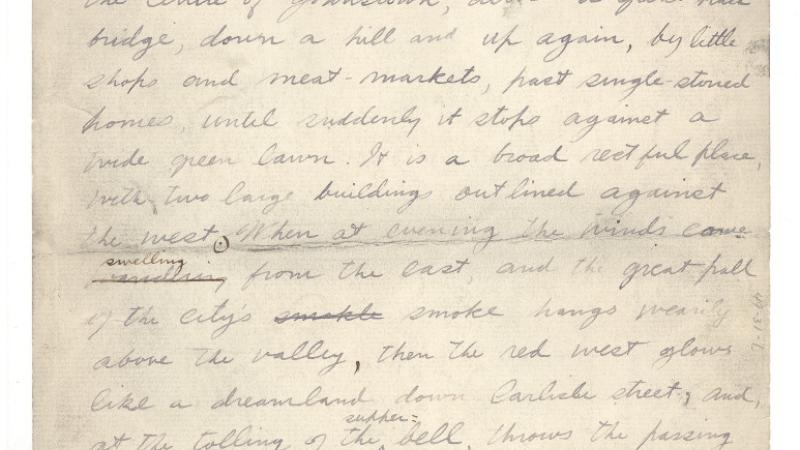 the centre of Johnstown, across a great black
bridge, down a hill and up again, by little
shops and meat-markets, past single-storied
homes, until suddenly it stops against a
wide green lawn. It is a broad restful place,
with two large buildings outlined against
the west. When at evening the winds come
swelling
from the east, and the great pall
of the city's smokle smoke hangs wearily
above the valley, then the red west glows
like a dreamland down Carlisle street, and,
supper-
at the tolling of the bell, throws the passing